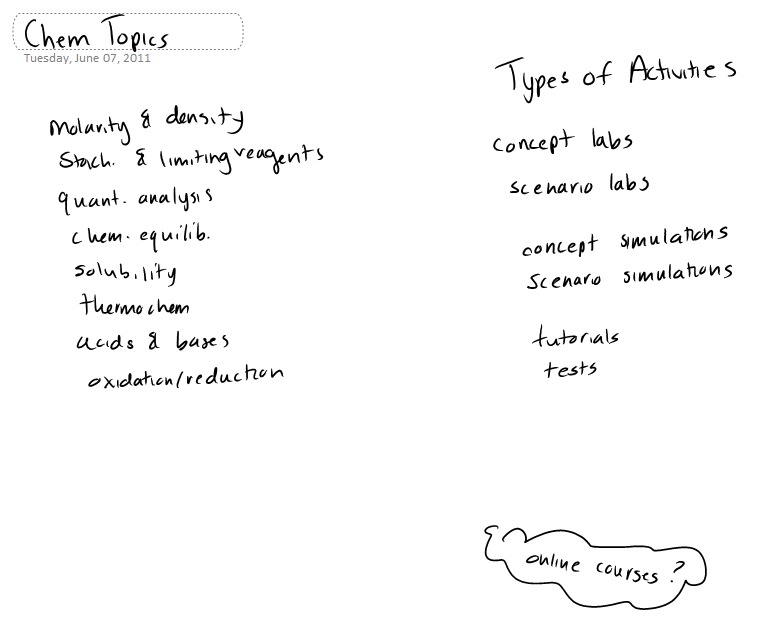 Chem Topics
Tuesday, June 07, 2011
Molarity & density
Stoich. & limiting reagents
quant. analysis
chem. equilib.
solubility
thermochem
acids & bases
oxidation/reduction
Types of Activities
concept labs
scenario labs
concept simulations
scenario simulations
tutorials
tests
online courses?